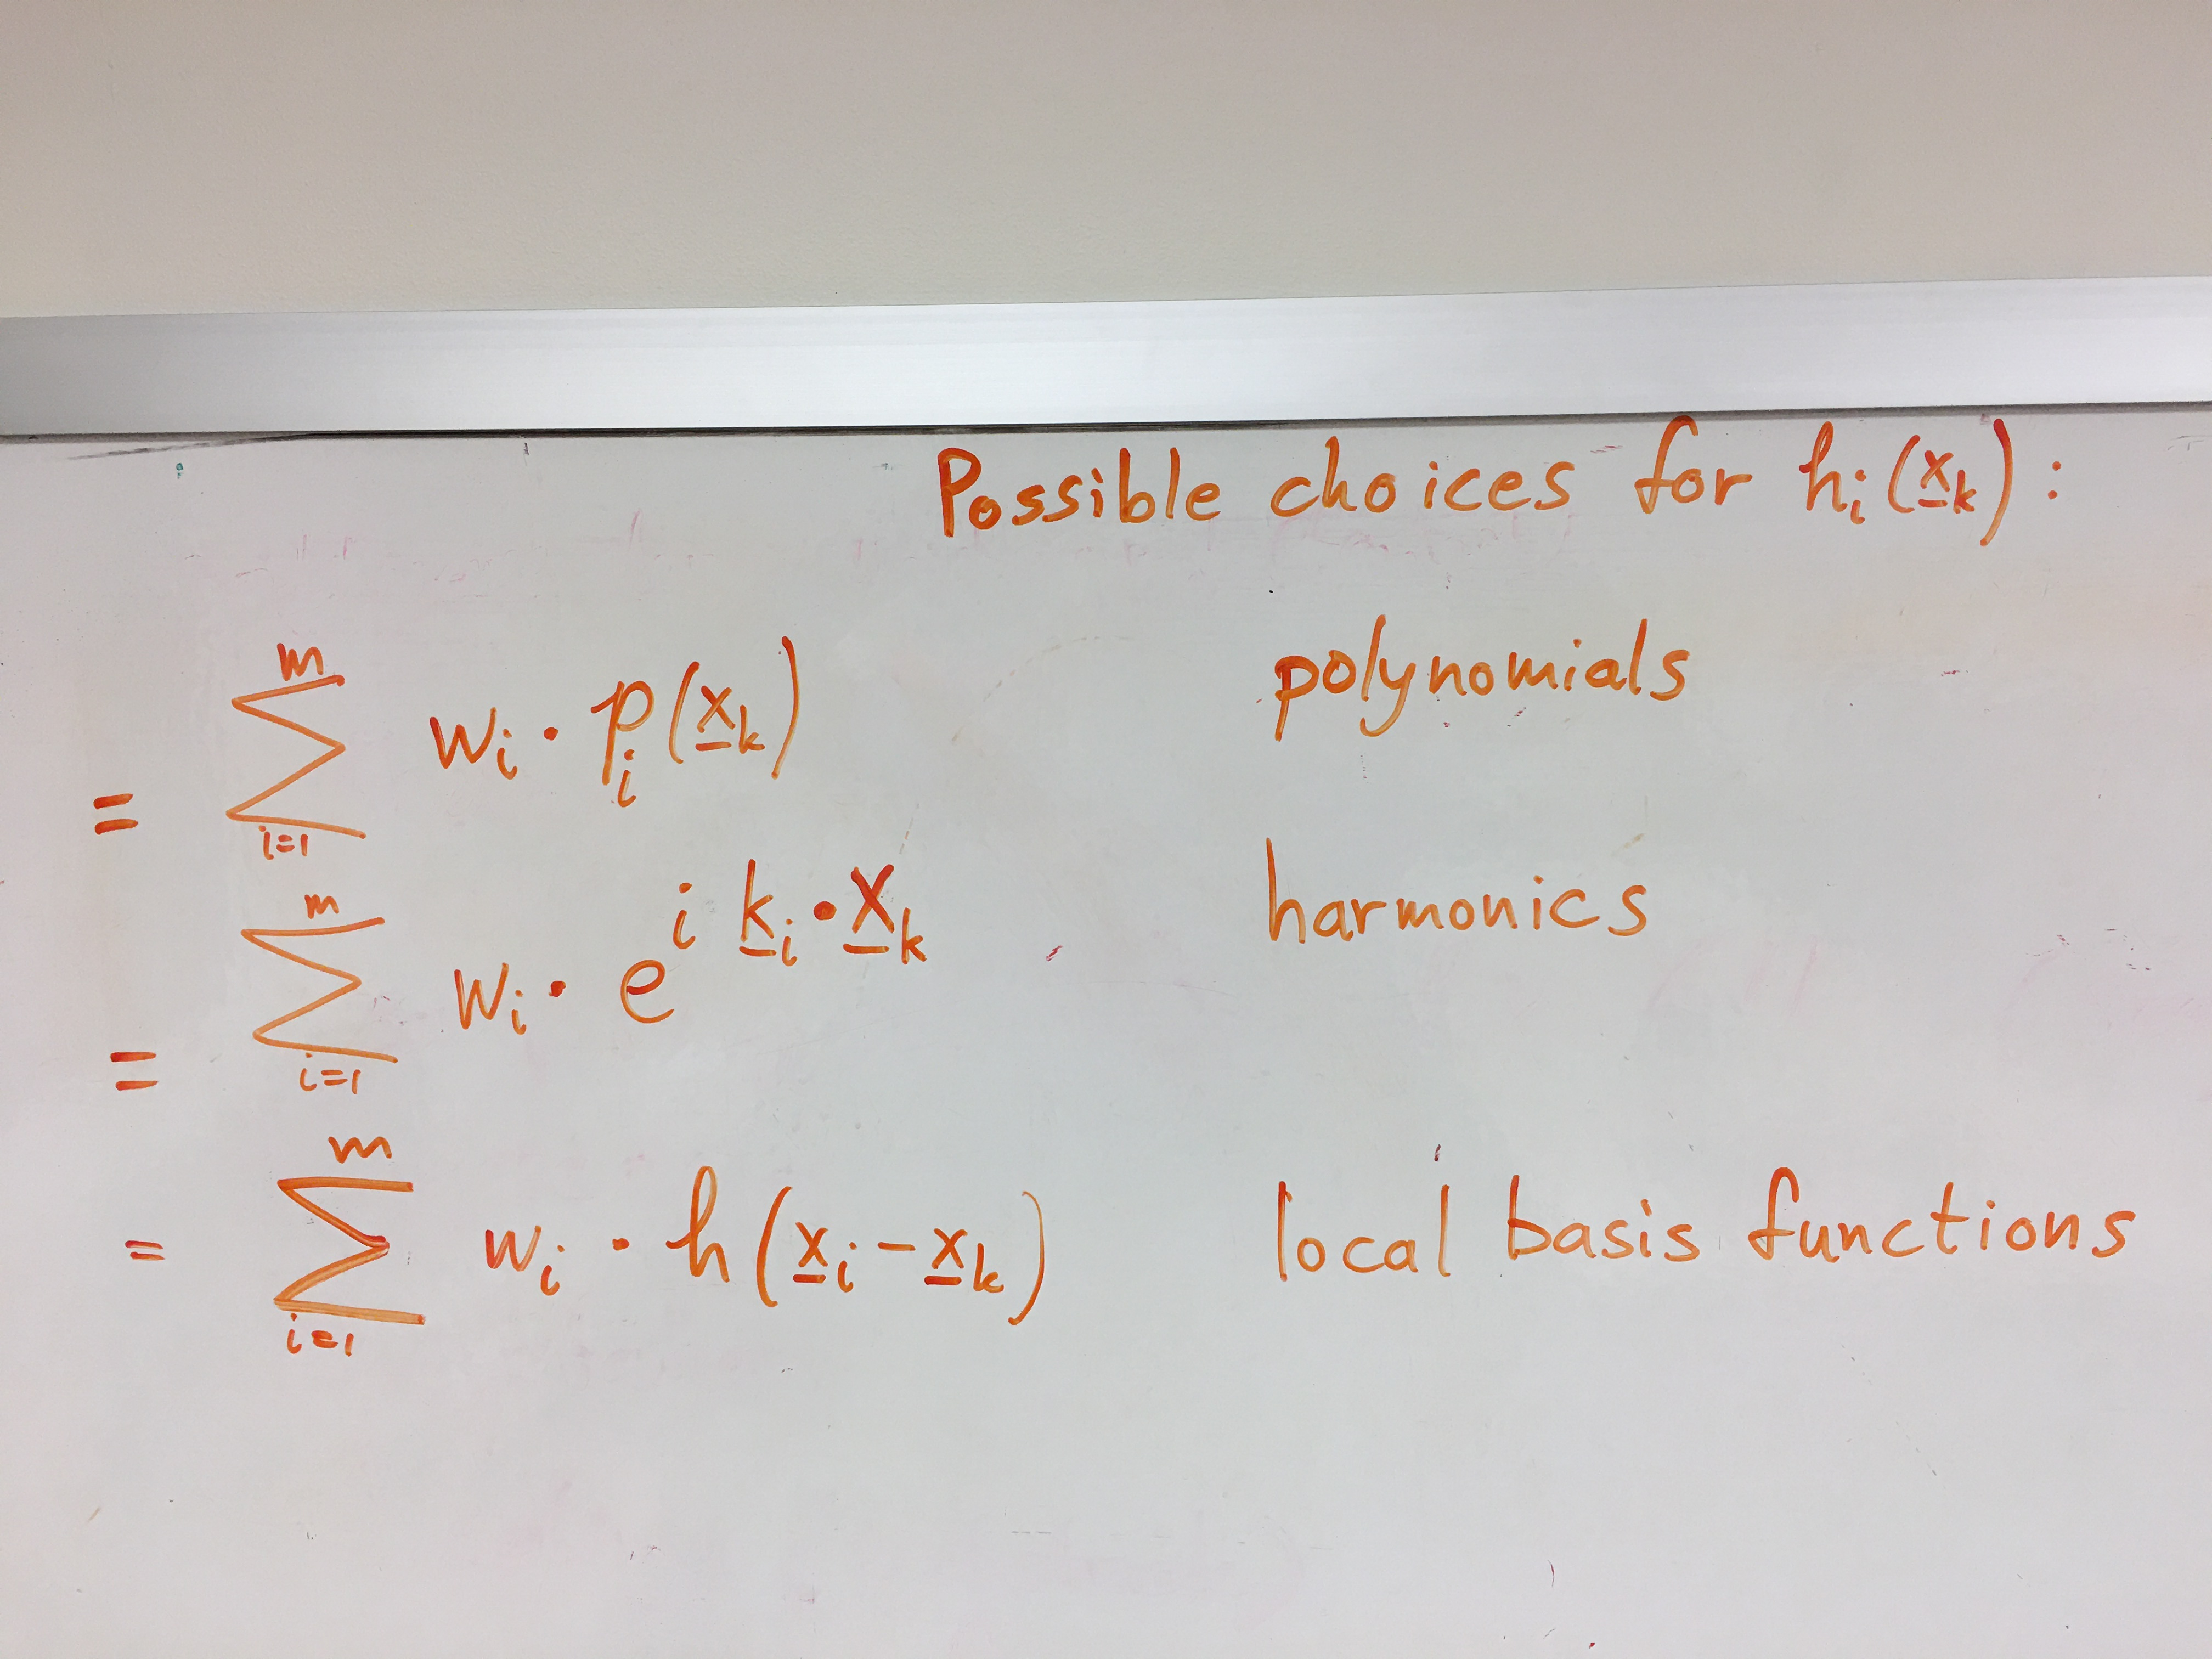 Possible choices for hᵢ(x̲ₖ) :
= ∑ᵢ₌₁ᵐ wᵢ · pᵢ(x̲ₖ) polynomials
= ∑ᵢ₌₁ᵐ wᵢ · e^(i k̲ᵢ · x̲ₖ) harmonics
= ∑ᵢ₌₁ᵐ wᵢ · h(x̲ᵢ − x̲ₖ) local basis functions